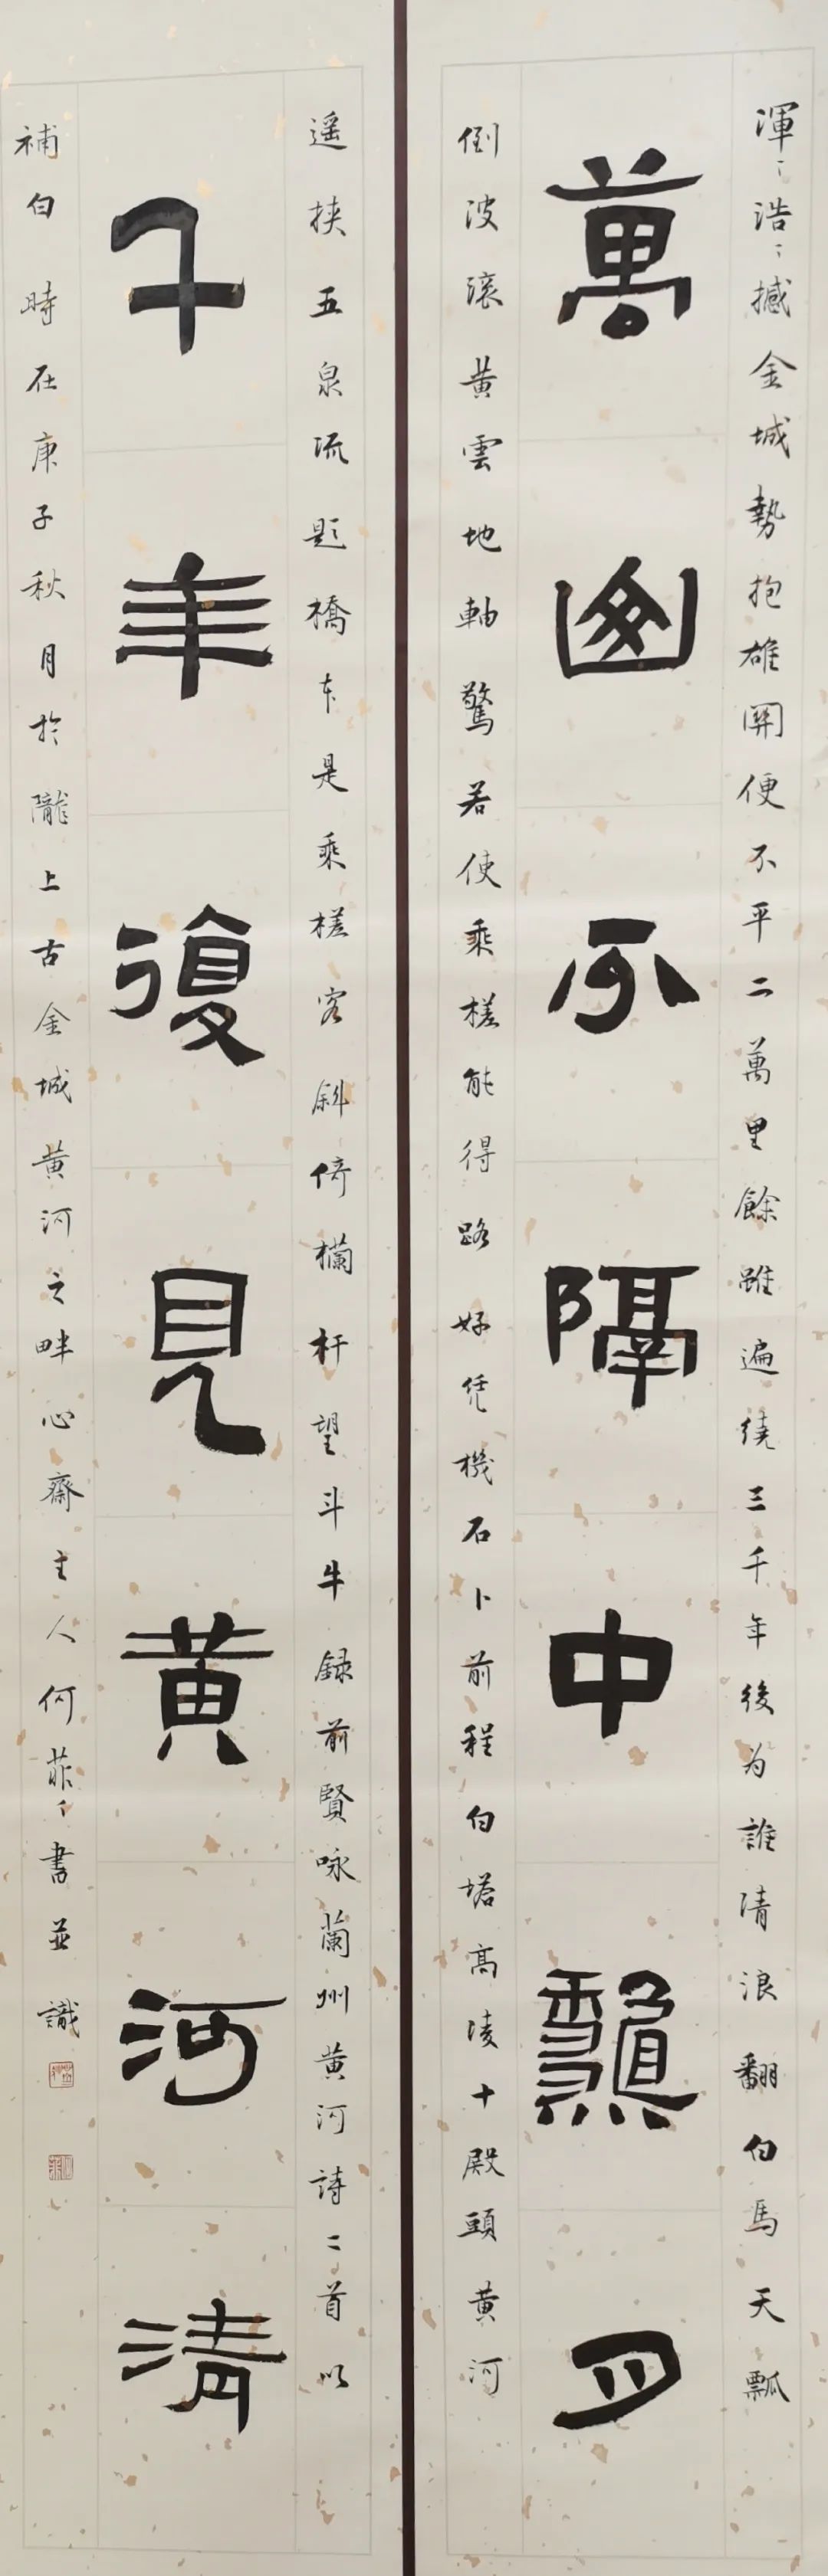 渾〻浩〻撼金城勢抱雄關便不平二萬里餘雖遍繞三千年後为誰清浪翻白馬天瓢
萬山不隔中秋月
倒波滚黄雲地軸驚若使乘槎能得路好凭機石卜前程白塔高陵十殿頭黄河
遥挾五泉流題橋本是乘槎客斜倚欄杆望斗牛録前賢咏蘭州黄河詩二首以
千年復見黄河清
補白時在庚子秋月於隴上古金城黄河之畔心齋主人何菲〻書並識